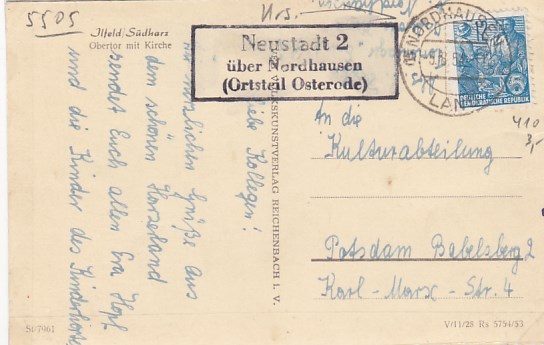 5505
Ilfeld/Südharz
Obertor mit Kirche
Neustadt 2
über Nordhausen
(Ortsteil Osterode)
NORDHAUSEN
LAN
DEUTSCHE
DEMOKRATISCHE REPUBLIK
Liebe Kollegen!
Grüße aus
dem schönen Harzerland
sendet Euch allen Eva Hopf
und die Kinder des Kinderhorts
VOLKSKUNSTVERLAG REICHENBACH I. V.
An die
Kulturabteilung
Potsdam Babelsberg 2
Karl-Marx-Str. 4
410
3,-
SI/7061
V/11/28 Rs 5754/53